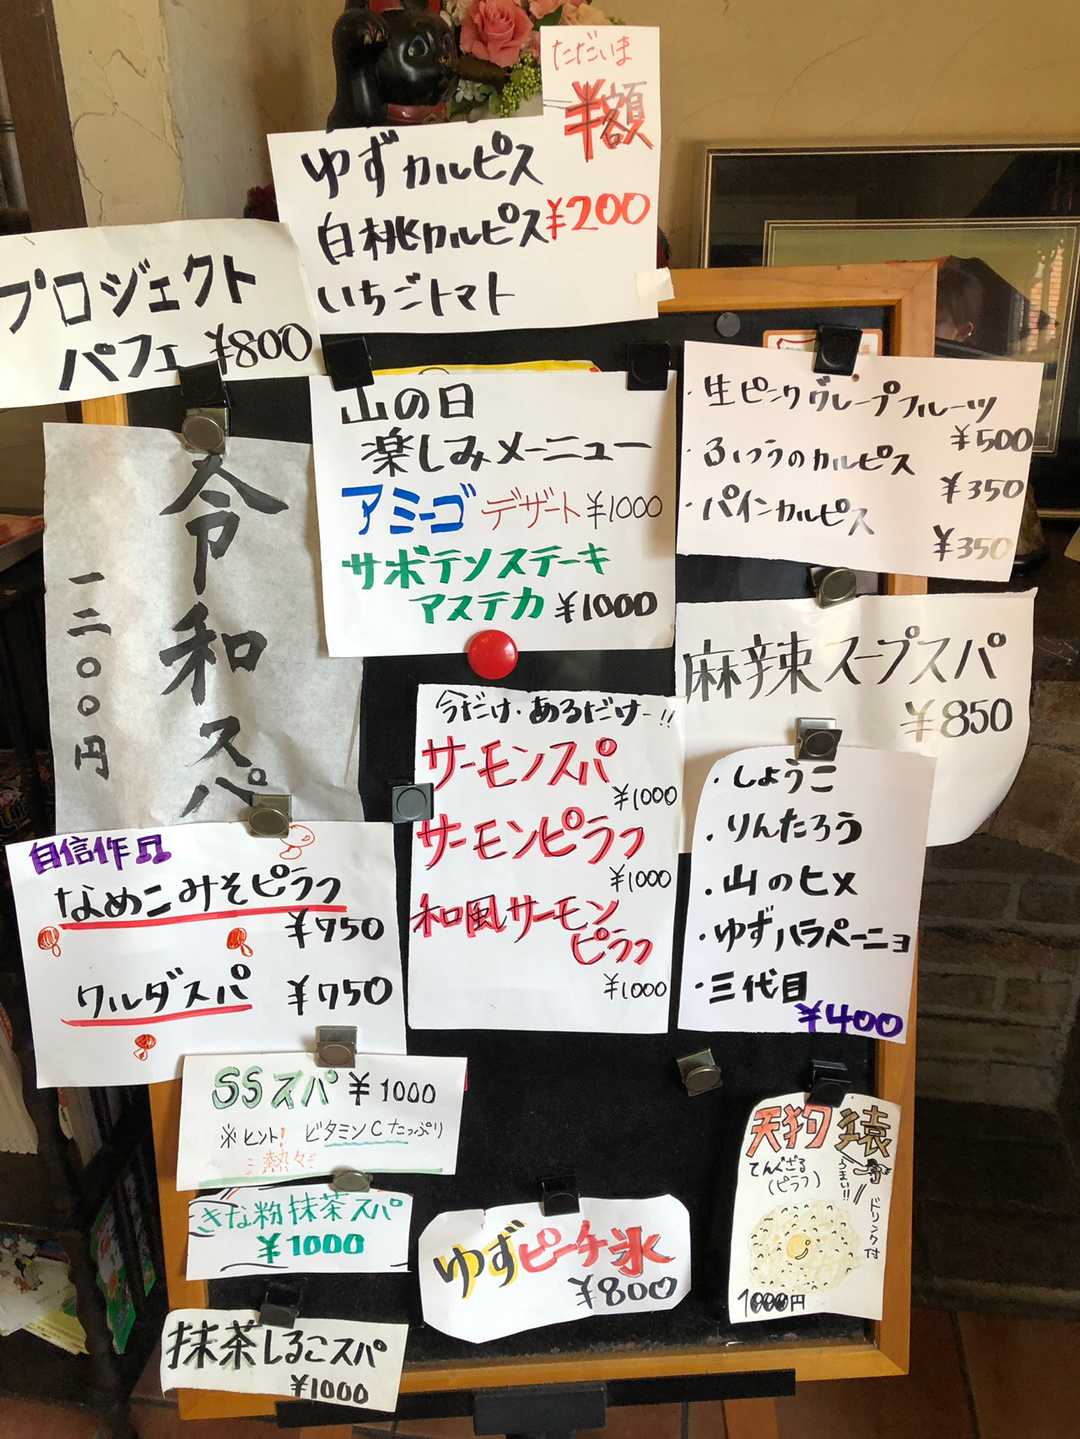 ただいま
半額
ゆずカルピス
白桃カルピス ¥200
いちごトマト
プロジェクト
パフェ ¥800
山の日
楽しみメニュー
アミーゴ デザート ¥1000
サボテンステーキ
アステカ ¥1000
・生ピンクグレープフルーツ
¥500
・ふつうのカルピス
¥350
・パインカルピス
¥350
令和スパ
一二〇〇円
麻辣スープスパ
¥850
今だけ・あるだけー!!
サーモンスパ
¥1000
サーモンピラフ
¥1000
和風サーモン
ピラフ
¥1000
・しょうこ
・りんたろう
・山のヒメ
・ゆずハラペーニョ
・三代目
¥400
自信作♫
なめこみそピラフ
¥950
ワルダスパ ¥750
SSスパ ¥1000
※ヒント! ビタミンCたっぷり
熱々
きな粉抹茶スパ
¥1000
抹茶しるこスパ
¥1000
ゆずピーチ氷
¥800
天狗猿
てんぐざる
(ピラフ)
うまい!!
ドリンク付
1000円